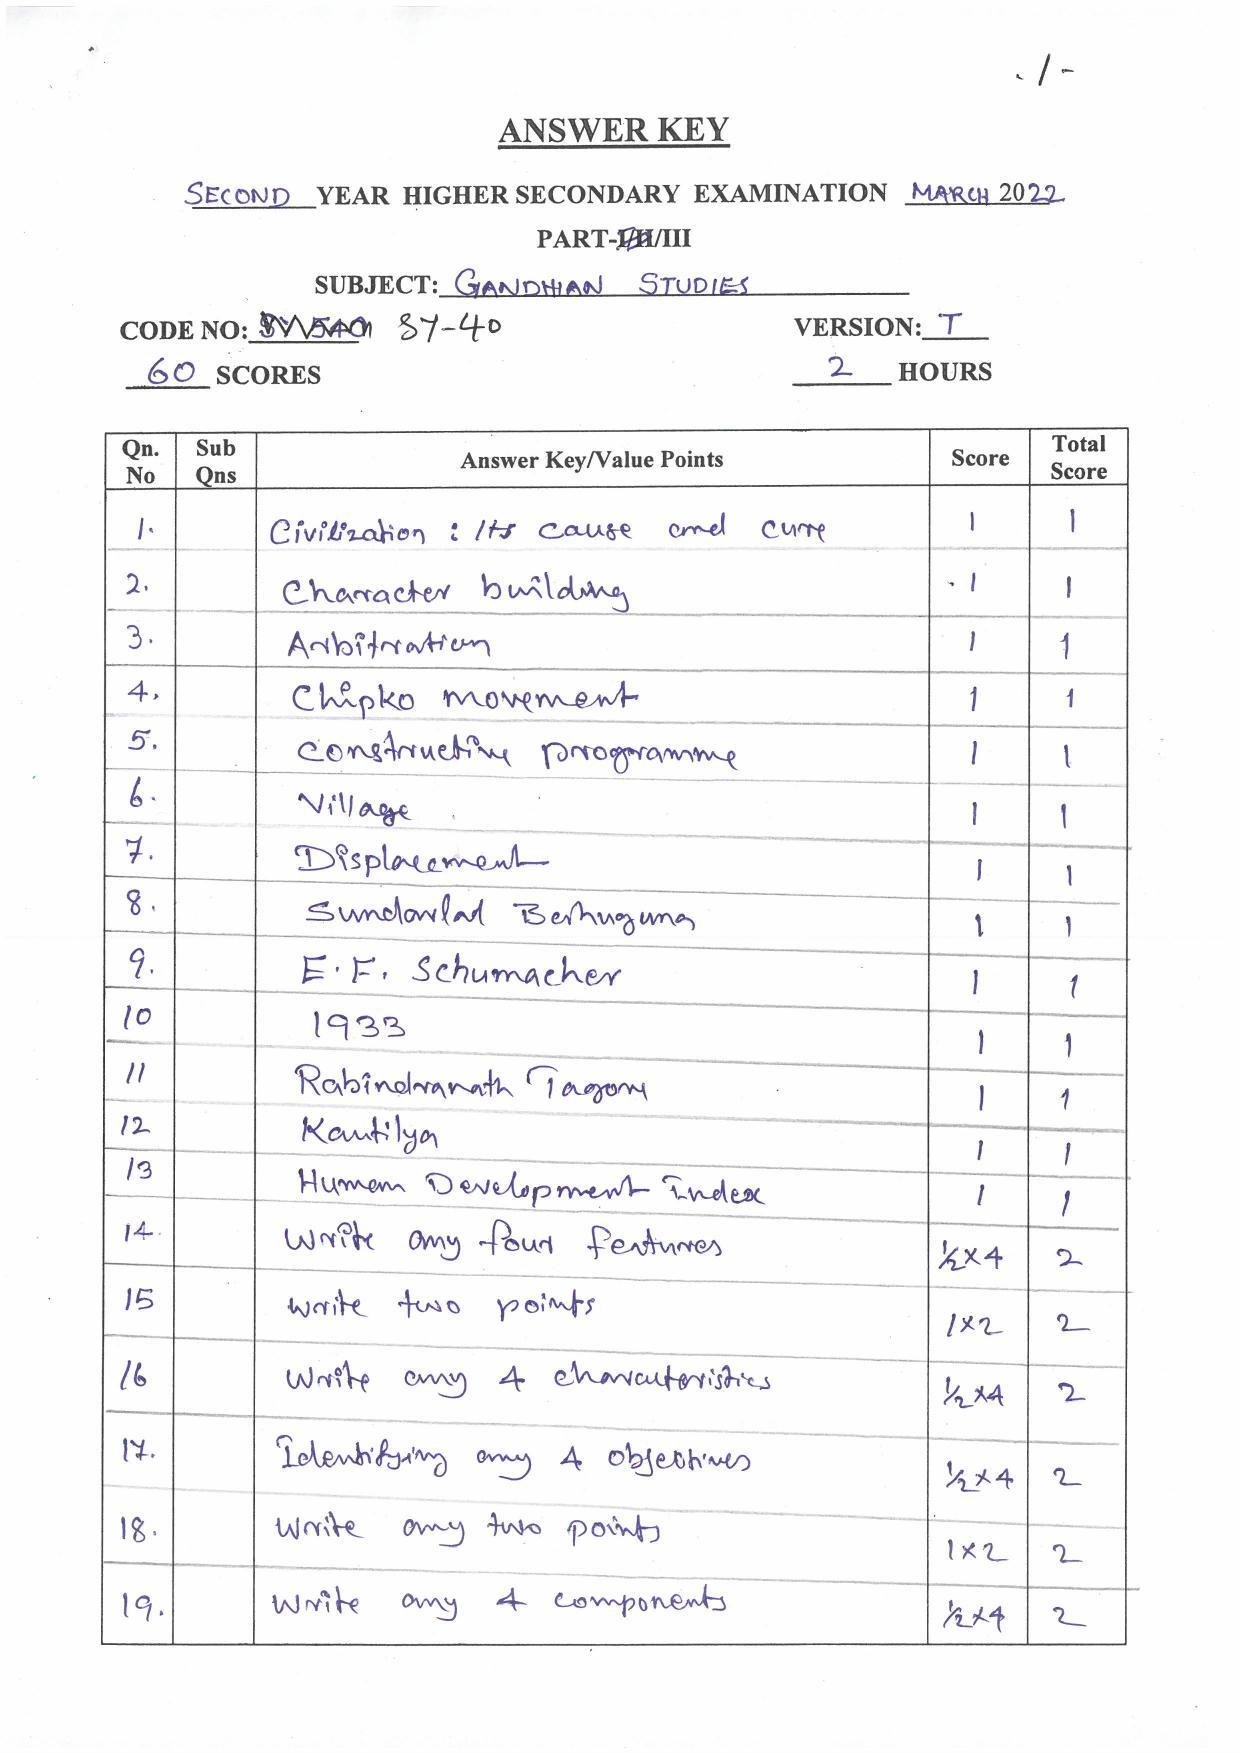 . / -
ANSWER KEY
SECOND YEAR HIGHER SECONDARY EXAMINATION MARCH 2022
PART-I/II/III
SUBJECT: GANDHIAN STUDIES
CODE NO: SY-40 VERSION: T
60 SCORES 2 HOURS
Qn. No Sub Qns Answer Key/Value Points Score Total Score
1. Civilization : Its cause and cure 1 1
2. Character building 1 1
3. Arbitration 1 1
4. Chipko movement 1 1
5. Constructive programme 1 1
6. Village 1 1
7. Displacement 1 1
8. Sundarlal Bahuguna 1 1
9. E. F. Schumacher 1 1
10 1933 1 1
11 Rabindranath Tagore 1 1
12 Kautilya 1 1
13 Human Development Index 1 1
14. Write any four features ½×4 2
15 Write two points 1×2 2
16 Write any 4 characteristics ½×4 2
17. Identifying any 4 objectives ½×4 2
18. Write any two points 1×2 2
19. Write any 4 components ½×4 2